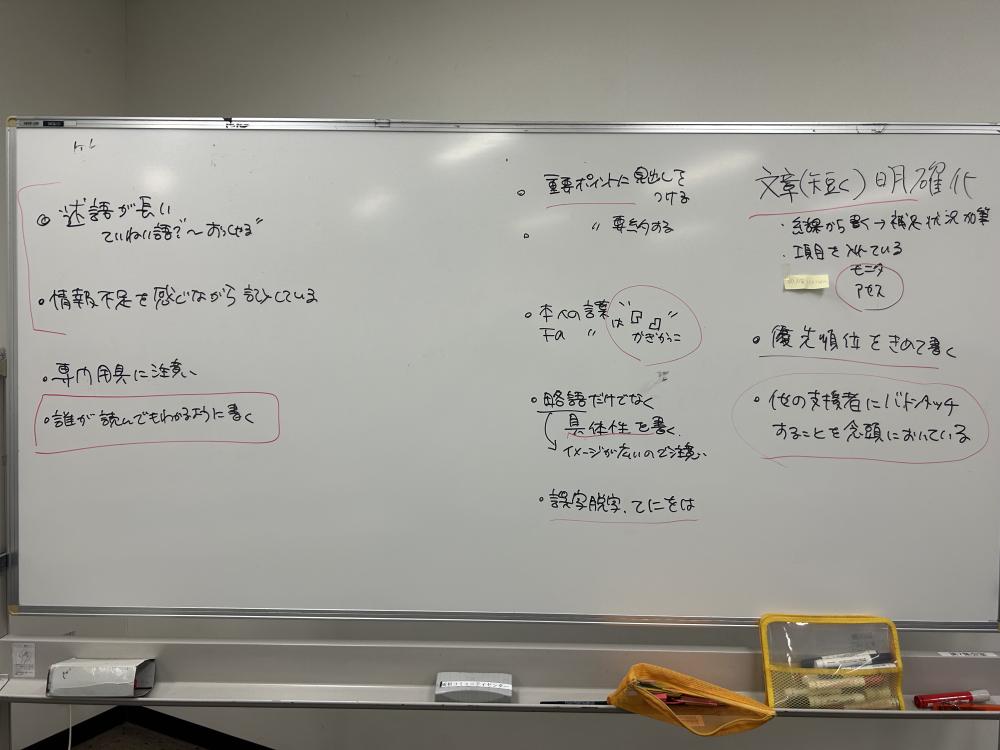 文章(短く)明確化
・結線から書く→補足状況加筆
・項目を入れている
モニタ
アセス
・優先順位をきめて書く
・他の支援者にバトンタッチ
することを念頭においている
・重要ポイントに見出しを
つける
・ 〃 要約する
・本人の言葉は
Fa 〃
かぎかっこ
・略語だけでなく
具体性を書く.
イメージが広いので注意
・誤字脱字、てにをは
◎“述語が長い
ていねい語で~おっしゃる”
・情報不足を感じながら記入している
・専門用具に注意
・誰が読んでもわかるように書く